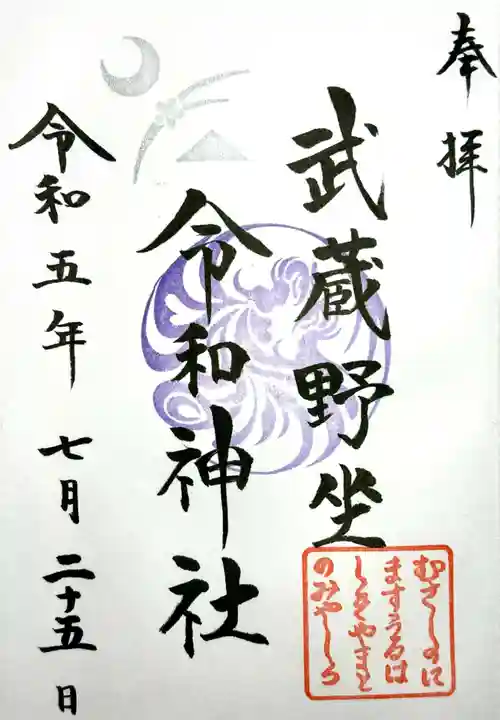 奉拝
武蔵野坐
令和神社
むさしのに
ますうるは
しきやまと
のみやしろ
令和五年 七月 二十五日